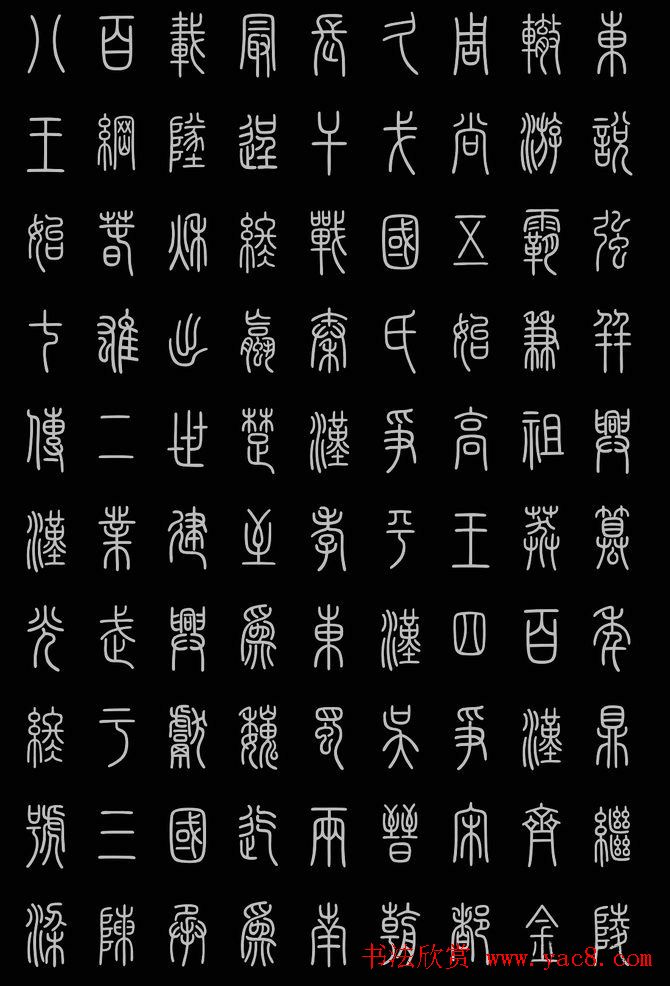 八百載最長久周轍東
王綱墜逞干戈尚游說
始春秋終戰國五霸強
七雄出嬴秦氏始兼并
傳二世楚漢爭高祖興
漢業建至孝平王莽篡
光武興為東漢四百年
終于獻魏蜀吳爭漢鼎
號三國迄兩晉宋齊繼
梁陳承為南朝都金陵
书法欣赏 www.yac8.com